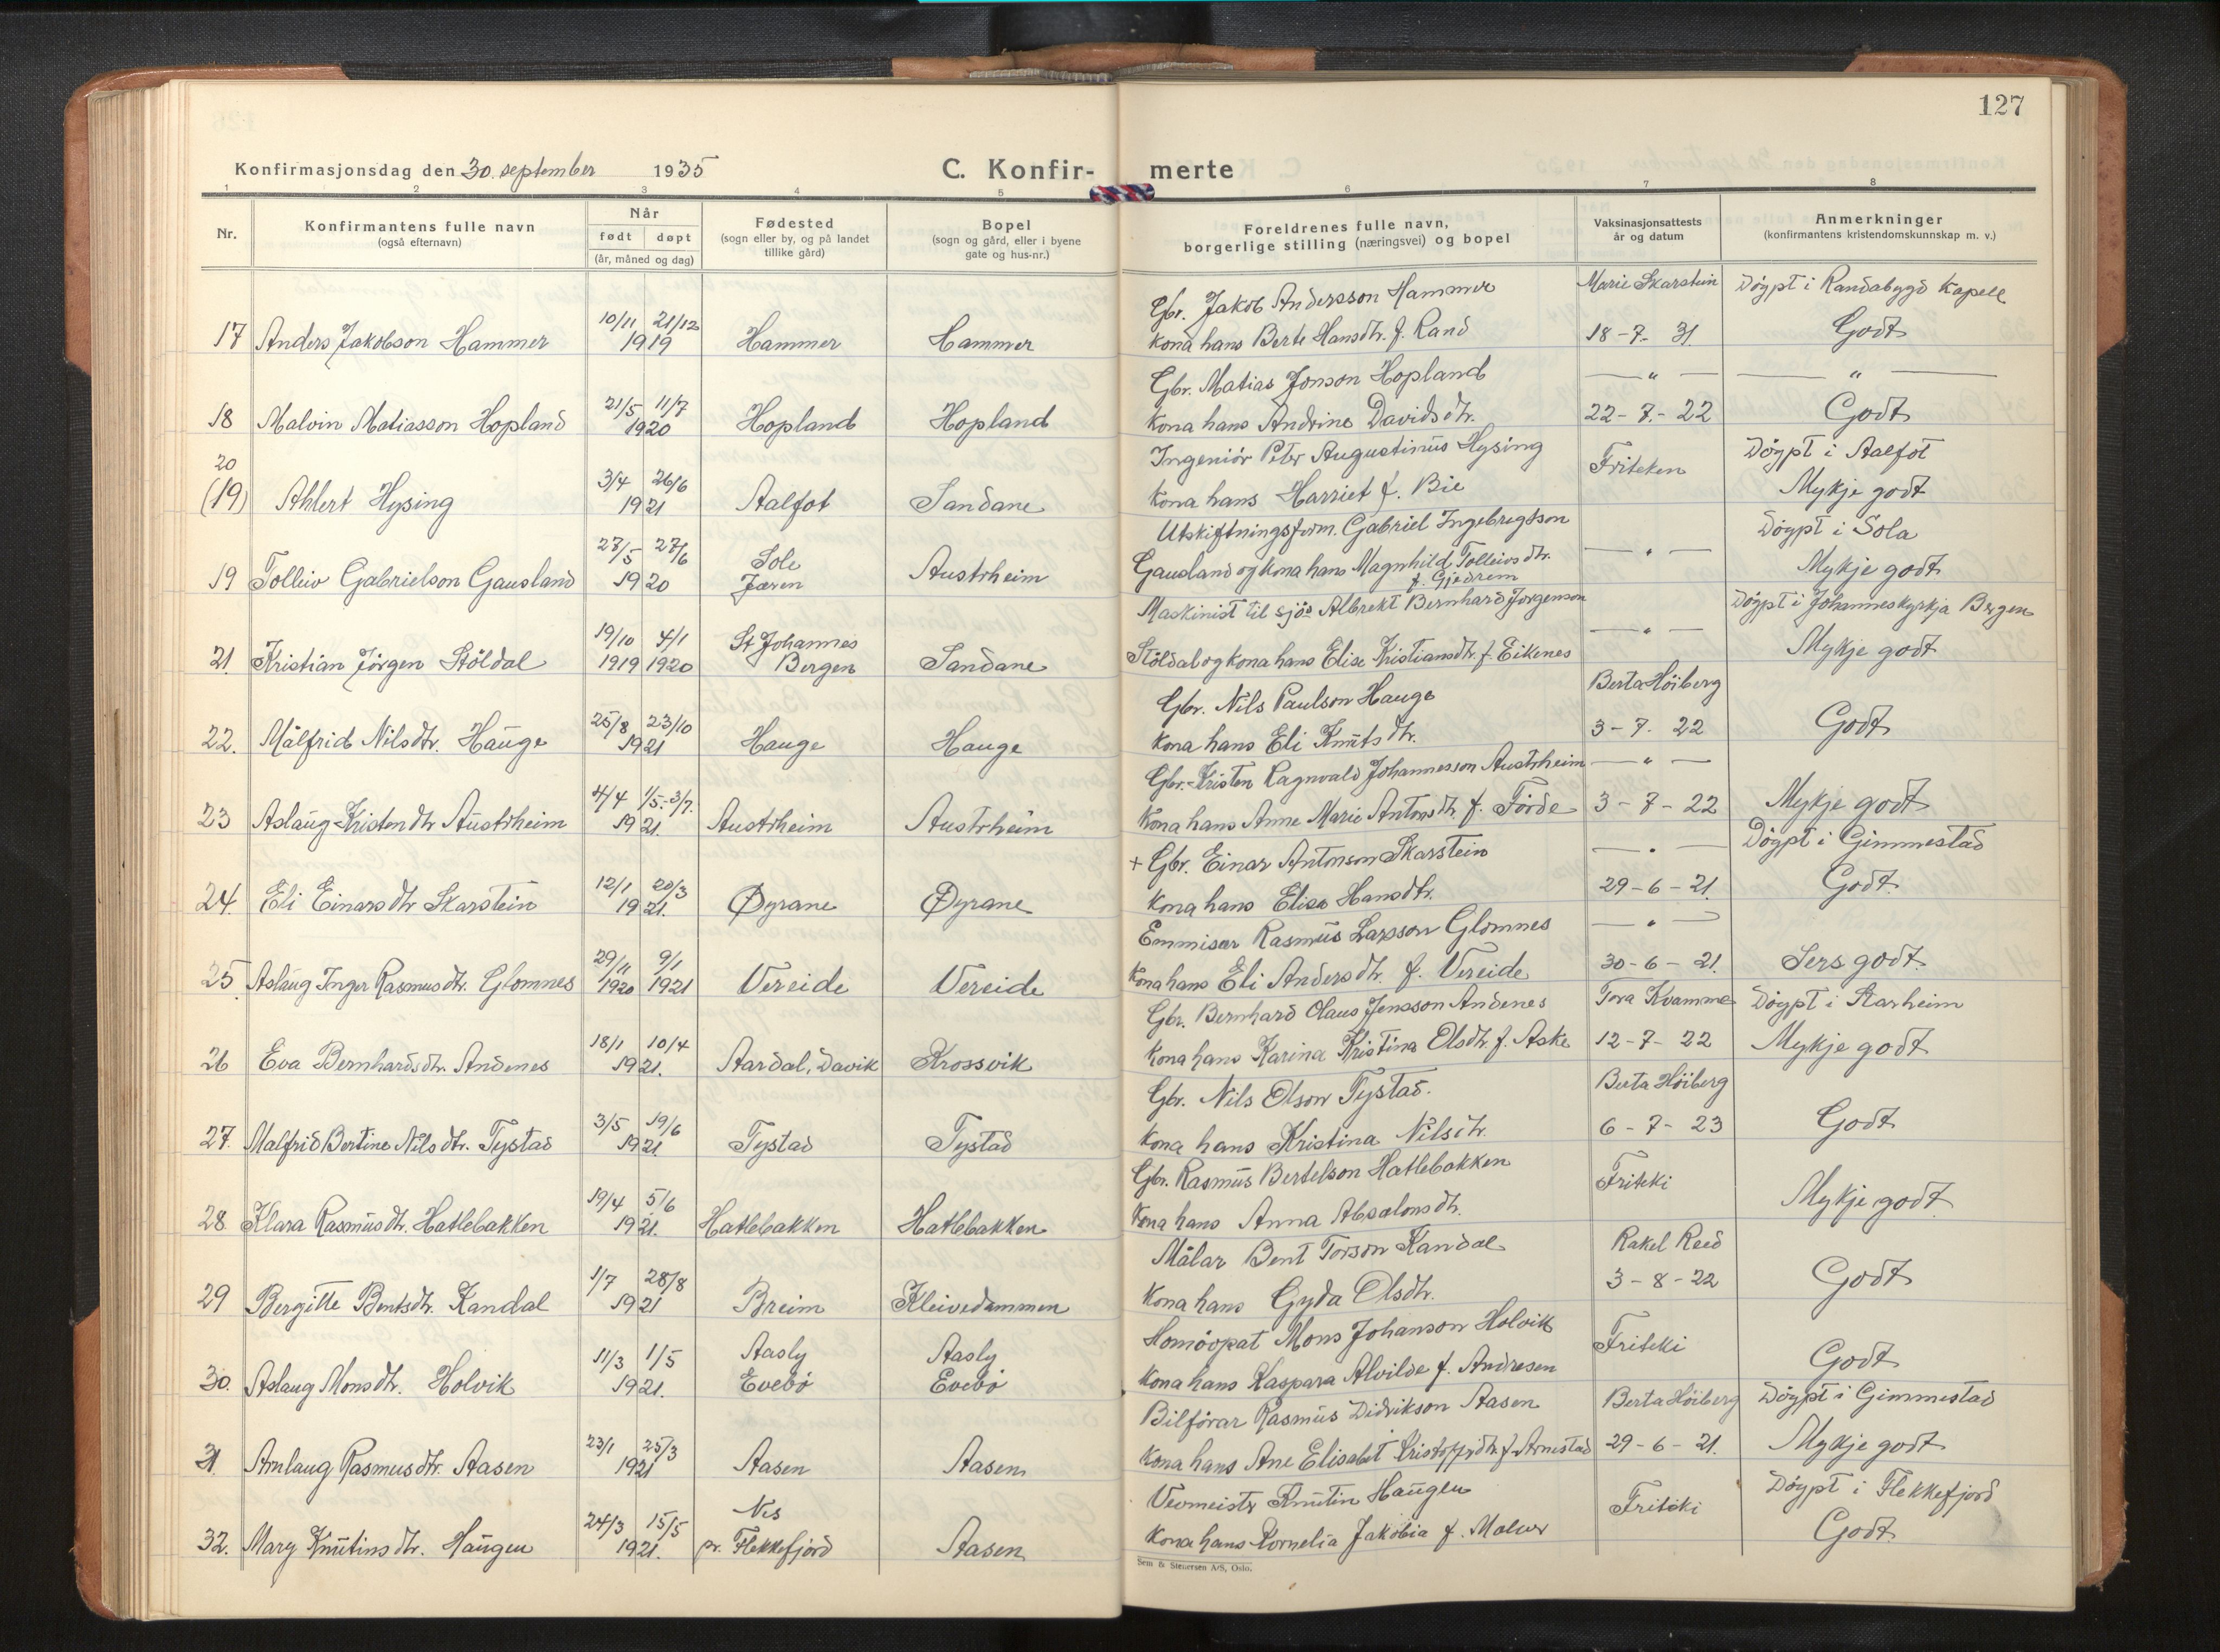 127
Konfirmasjonsdag den 30. september 1935
C. Konfir-
merte
1 2 3 4 5 6 7 8
Nr.
Konfirmantens fulle navn
(også efternavn)
Når
født døpt
(år, måned og dag)
Fødested
(sogn eller by, og på landet
tillike gård)
Bopel
(sogn og gård, eller i byene
gate og hus-nr.)
Foreldrenes fulle navn,
borgerlige stilling (næringsvei) og bopel
Vaksinasjonsattests
år og datum
Anmerkninger
(konfirmantens kristendomskunnskap m. v.)
Gbr. Jakob Andersson Hammer Marie Skarstein Döypt i Randabygd Kapell
10/11 21/12
17 Anders Jakobson Hammer 1919 Hammer Hammer kona hans Berte Hansdtr. f. Rand 18-7- 31. Godt
Gbr. Matias Jonson Hopland — " — — " —
21/5 11/7
18 Malvin Matiasson Hopland 1920 Hopland Hopland kona hans Andrine Davidsdtr. 22-7-22 Godt
Ingeniör Peter Augustinus Hysing Friteken Döypt i Aalfot
20 3/4 26/6
(19) Ahlert Hysing 1921 Aalfot Sandane kona hans Harriet f. Bie Mykje godt
Utskiftningsform. Gabriel Ingebregtson Döypt i Sola
27/5 27/6 Sole — " —
19 Tolleiv Gabrielson Gausland 1920 Jæren Austrheim Gausland og kona hans Magnhild Tolleivsdtr. Mykje godt
f. Gjedrem
Maskinist til sjös Albrekt Bernhard Jorgenson Döypt i Johanneskyrkja Bergen
19/10 4/1 St Johannes — " —
21. Kristian Jörgen Stöldal 1919 1920 Bergen Sandane Stöldal og kona hans Elise Kristiansdtr. f. Eikenes Mykje godt
Gbr. Nils Paulson Hauge Berta Höiberg
25/8 23/10
22. Målfrid Nilsdtr. Hauge 1921 Hauge Hauge kona hans Eli Knutsdtr. 3-7- 22 Godt
Gbr. Kristen Ragnvald Johannesson Austrheim — " —
4/4 1/5.-3/7.
23 Aslaug Kristendtr Austrheim 1921. Austrheim Austrheim kona hans Anne Marie Antonsdtr. f. Förde 3-7-22 Mykje godt
+ Gbr. Einar Antonson Skarstein — " — Döypt i Gimmestad
12/1 20/3
24. Eli Einarsdtr Skarstein 1921. Øyrane Øyrane kona hans Elise Hansdtr. 29-6-21. Godt.
Emmisær Rasmus Larsson Glomnes — " —
29/11 9/1
25 Aslaug Inger Rasmusdtr. Glomnes 1920 1921 Vereide Vereide kona hans Eli Andersdtr. f. Vereide 30-6-21. Sers godt.
Gbr. Bernhard Olaus Jensson Andenes Tora Kvamme Döypt i Starheim
18/1 10/4
26 Eva Bernhardsdtr. Andenes 1921. Aardal, Davik Krossvik kona hans Karina Kristina Olsdtr. f. Aske 12-7-22 Mykje godt
Gbr. Nils Olson Tystad. Berta Höiberg
3/5 19/6
27. Malfrid Bertine Nilsdtr. Tystad 1921. Tystad Tystad kona hans Kristina Nilsdtr. 6-7-23 Godt
Gbr. Rasmus Bertelson Hatlebakken Friteki
19/4 5/6
28 Klara Rasmusdtr. Hatlebakken 1921. Hatlebakken Hatlebakken kona hans Anna Absalonsdtr. Mykje godt
Målar Bent Torson Kandal Rakel Reed
1/7 28/8
29 Bergitte Bentsdtr. Kandal 1921 Breim Kleivedammen kona hans Gyda Olsdtr. 3-8-22 Godt
Homöopat Mons Johanson Holvik Friteki
11/3 1/5 Aasly Aasly
30. Aslaug Monsdtr. Holvik 1921. Evebö Evebö kona hans Kaspara Alvilde f. Andresen Godt
Bilförar Rasmus Didrikson Aasen Berta Höiberg Döypt i Gimmestad
23/1 25/3
31. Arnlaug Rasmusdtr. Aasen 1921 Aasen Aasen kona hans Ane Elisabet Kristoffsdtr. f. Arnestad 29-6-21. Mykje godt
Vevmeister Knutin Haugen Friteki Döypt i Flekkefjord
24/3 15/5 Nes
32. Mary Knutinsdtr. Haugen 1921. pr. Flekkefjord Aasen kona hans Kornelia Jakobia f. Godt
Sem & Stenersen A/S, Oslo.